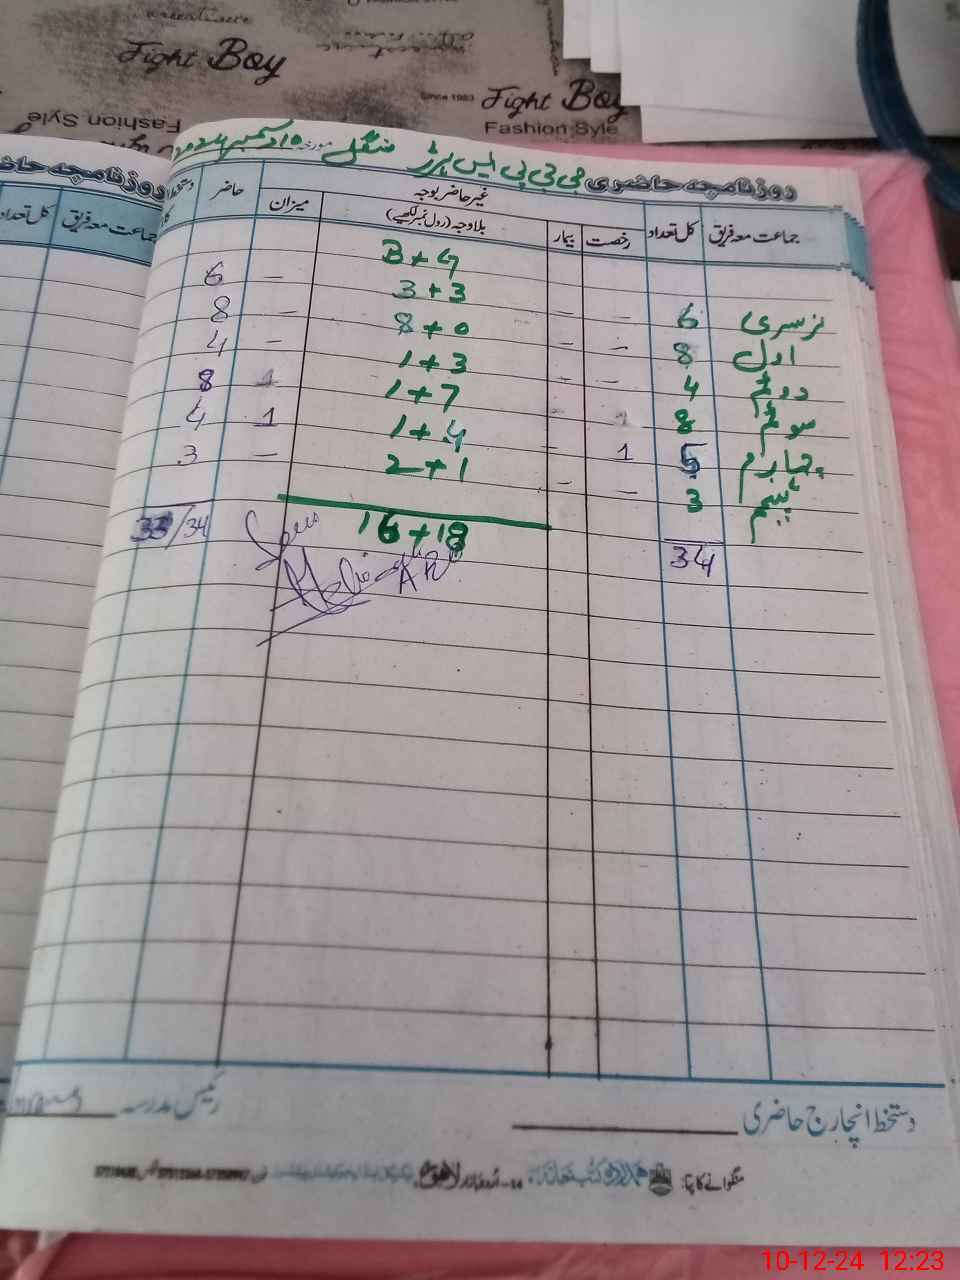 Fight Boy
Since 1983
Fight Boy
Fashion Syle
Fashion Syle
روزنامچہ حاضری جی جی پی ایس مورخہ 10 دسمبر 2024 منگل
جماعت معہ فریق کل تعداد رخصت بیمار غیر حاضر بوجہ میزان حاضر
بلاوجہ (رول نمبر لکھیے)
B + G
نرسری 6 – – 3 + 3 – 6
اول 8 – – 8 + 0 – 8
دوئم 4 – – 1 + 3 – 4
سوئم 8 1 + 7 8
چہارم 5 1 – 1 + 4 1 4
پنجم 3 – – 2 + 1 – 3
34 16 + 18 33/34
کل تعداد جماعت معہ فریق
دستخط انچارج حاضری رئیس مدرسہ
منگوانے کا پتہ: ہمدرد کتب خانہ اردو بازار لاہور
10-12-24 12:23